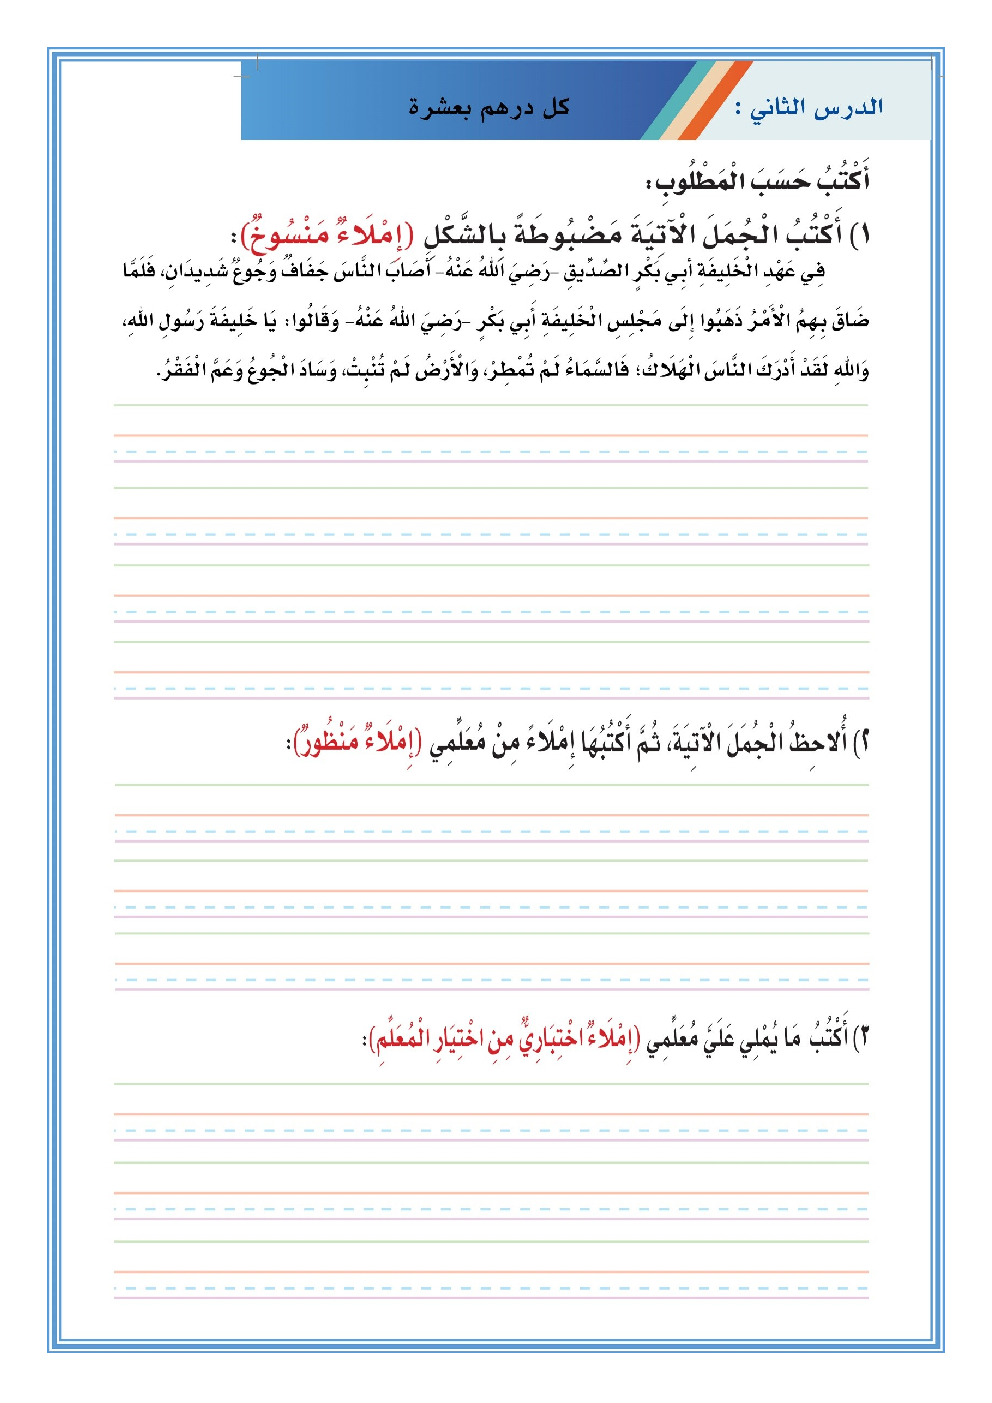 الدرس الثاني : كل درهم بعشرة
أَكْتُبُ حَسَبَ الْمَطْلُوبِ:
١) أَكْتُبُ الْجُمَلَ الْآتِيَةَ مَضْبُوطَةً بِالشَّكْلِ (إِمْلَاءٌ مَنْسُوخٌ):
فِي عَهْدِ الْخَلِيفَةِ أبِي بَكْرٍ الصِّدِّيقِ -رَضِيَ اللهُ عَنْهُ- أَصَابَ النَّاسَ جَفَافٌ وَجُوعٌ شَدِيدَانِ، فَلَمَّا
ضَاقَ بِهِمُ الْأَمْرُ ذَهَبُوا إِلَى مَجْلِسِ الْخَلِيفَةِ أَبِي بَكْرٍ -رَضِيَ اللهُ عَنْهُ- وَقَالُوا: يَا خَلِيفَةَ رَسُولِ اللهِ،
وَاللهِ لَقَدْ أَدْرَكَ النَّاسَ الْهَلَاكُ؛ فَالسَّمَاءُ لَمْ تُمْطِرْ، وَالْأَرْضُ لَمْ تُنْبِتْ، وَسَادَ الْجُوعُ وَعَمَّ الْفَقْرُ.
٢) أُلاحِظُ الْجُمَلَ الْآتِيَةَ، ثُمَّ أَكْتُبُهَا إِمْلَاءً مِنْ مُعَلِّمِي (إِمْلَاءٌ مَنْظُورٌ):
٣) أَكْتُبُ مَا يُمْلِي عَلَيَّ مُعَلِّمِي (إِمْلَاءٌ اخْتِبَارِيٌّ مِنِ اخْتِيَارِ الْمُعَلِّمِ):